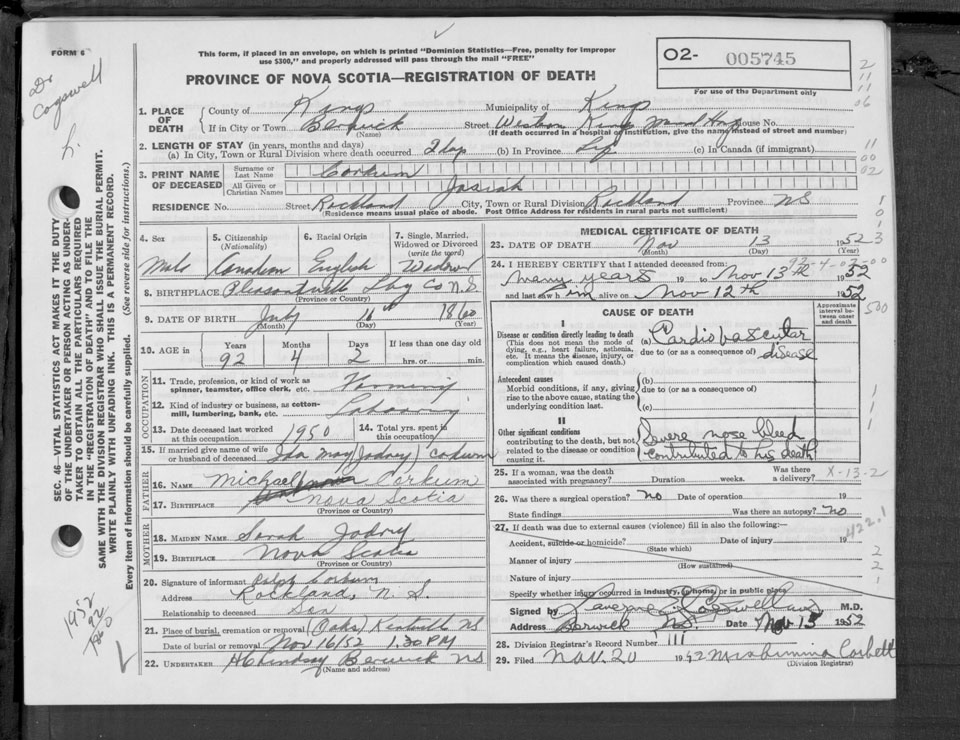 FORM 6
Dr Cogswell
L.
This form, if placed in an envelope, on which is printed "Dominion Statistics—Free, penalty for improper
use $300," and properly addressed will pass through the mail "FREE"
PROVINCE OF NOVA SCOTIA—REGISTRATION OF DEATH
O2- 005745
For use of the Department only
2
11
11
06
11
00
02
1. PLACE OF DEATH County of Kings Municipality of Kings
If in City or Town Berwick (Name) Street Western Kings Mem Hosp House No.
(If death occurred in a hospital or institution, give the name instead of street and number)
2. LENGTH OF STAY (in years, months and days)
(a) In City, Town or Rural Division where death occurred 2 days (b) In Province Life (c) In Canada (if immigrant)
3. PRINT NAME OF DECEASED Surname or Last Name Corkum
All Given or Christian Names Josiah
RESIDENCE No. Street Rockland City, Town or Rural Division Rockland Province NS
(Residence means usual place of abode. Post Office Address for residents in rural parts not sufficient)
SEC. 46—VITAL STATISTICS ACT MAKES IT THE DUTY
OF THE UNDERTAKER OR PERSON ACTING AS UNDER-
TAKER TO OBTAIN ALL THE PARTICULARS REQUIRED
IN THE "REGISTRATION OF DEATH" AND TO FILE THE
SAME WITH THE DIVISION REGISTRAR WHO SHALL ISSUE THE BURIAL PERMIT.
WRITE PLAINLY WITH UNFADING INK. THIS IS A PERMANENT RECORD.
Every item of information should be carefully supplied. (See reverse side for instructions.)
4. Sex Male
5. Citizenship (Nationality) Canadian
6. Racial Origin English
7. Single, Married, Widowed or Divorced (write the word) Widower
8. BIRTHPLACE Pleasantville Lbg Co N.S.
(Province or Country)
9. DATE OF BIRTH July 11 1860
(Month) (Day) (Year)
10. AGE in Years 92 Months 4 Days 2 If less than one day old hrs. or min.
OCCUPATION
11. Trade, profession, or kind of work as spinner, teamster, office clerk, etc. Farming
12. Kind of industry or business, as cotton-mill, lumbering, bank, etc. Labouring
13. Date deceased last worked at this occupation 1950
14. Total yrs. spent in this occupation
15. If married give name of wife or husband of deceased Ida May (Jodrey) Corkum
FATHER
16. NAME Michael Corkum
17. BIRTHPLACE Nova Scotia
(Province or Country)
MOTHER
18. MAIDEN NAME Sarah Jodry
19. BIRTHPLACE Nova Scotia
(Province or Country)
20. Signature of informant Ralph Corkum
Address Rockland, N. S.
Relationship to deceased Son
21. Place of burial, cremation or removal (Oaks) Kentville NS
Date of burial or removal Nov 16/52 1.30 PM
22. UNDERTAKER H C Lindsay Berwick NS
(Name and address)
1952
92
MEDICAL CERTIFICATE OF DEATH
23. DATE OF DEATH Nov 13 1952
(Month) (Day) (Year)
92-4-02-00
24. I HEREBY CERTIFY that I attended deceased from:
many years 19 to Nov 13th 1952
and last saw him alive on Nov 12th 1952
500
CAUSE OF DEATH
Approximate interval between onset and death
I
Disease or condition directly leading to death (This does not mean the mode of dying, e.g., heart failure, asthenia, etc. It means the disease, injury, or complication which caused death.)
(a) Cardiovascular disease
due to (or as a consequence of)
Antecedent causes
Morbid conditions, if any, giving rise to the above cause, stating the underlying condition last.
(b)
due to (or as a consequence of)
(c)
II
Other significant conditions
contributing to the death, but not related to the disease or condition causing it.
Severe nose bleed contributed to his death
25. If a woman, was the death associated with pregnancy? Duration weeks. Was there a delivery?
X-13-2
26. Was there a surgical operation? no Date of operation 19
State findings Was there an autopsy? no
422.1
27. If death was due to external causes (violence) fill in also the following:—
Accident, suicide or homicide? (State which) Date of injury 19
Manner of injury (How sustained)
Nature of injury
Specify whether injury occurred in industry, in home, or in public place
Signed by Laverne Cogswell M.D.
Address Berwick NS. Date Nov 15 1952
28. Division Registrar's Record Number 111
29. Filed Nov. 20 1952 Miss Emma Corbett
(Division Registrar)